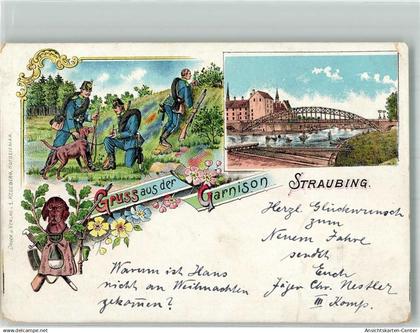 Gruss aus der Garnison
STRAUBING.
Herzl. Glückwunsch
zum
Neuem Jahre
sendet
Euch
Jäger Chr. Nestler
III Komp.
Warum ist Hans
nicht an Weihnachten
gekommen?
www.ansichtskarten-center.de
Ansichtskarten-Center